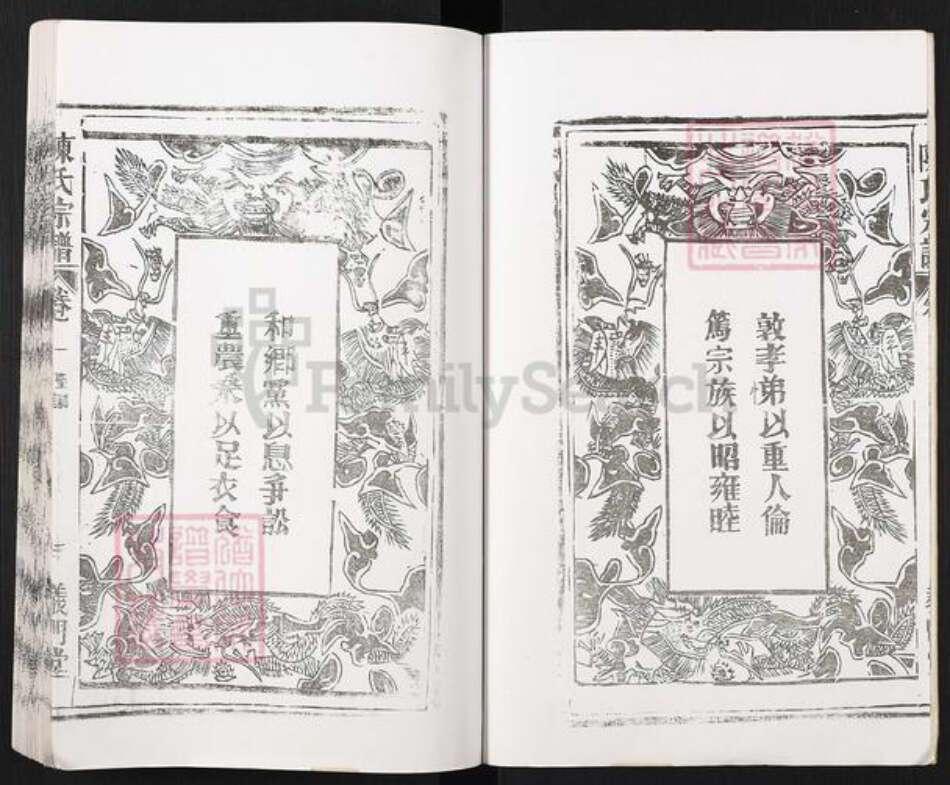 敦孝悌以重人倫
篤宗族以昭雍睦
和鄉黨以息爭訟
重農桑以足衣食
陳氏宗譜
卷一
義門堂
FamilySearch